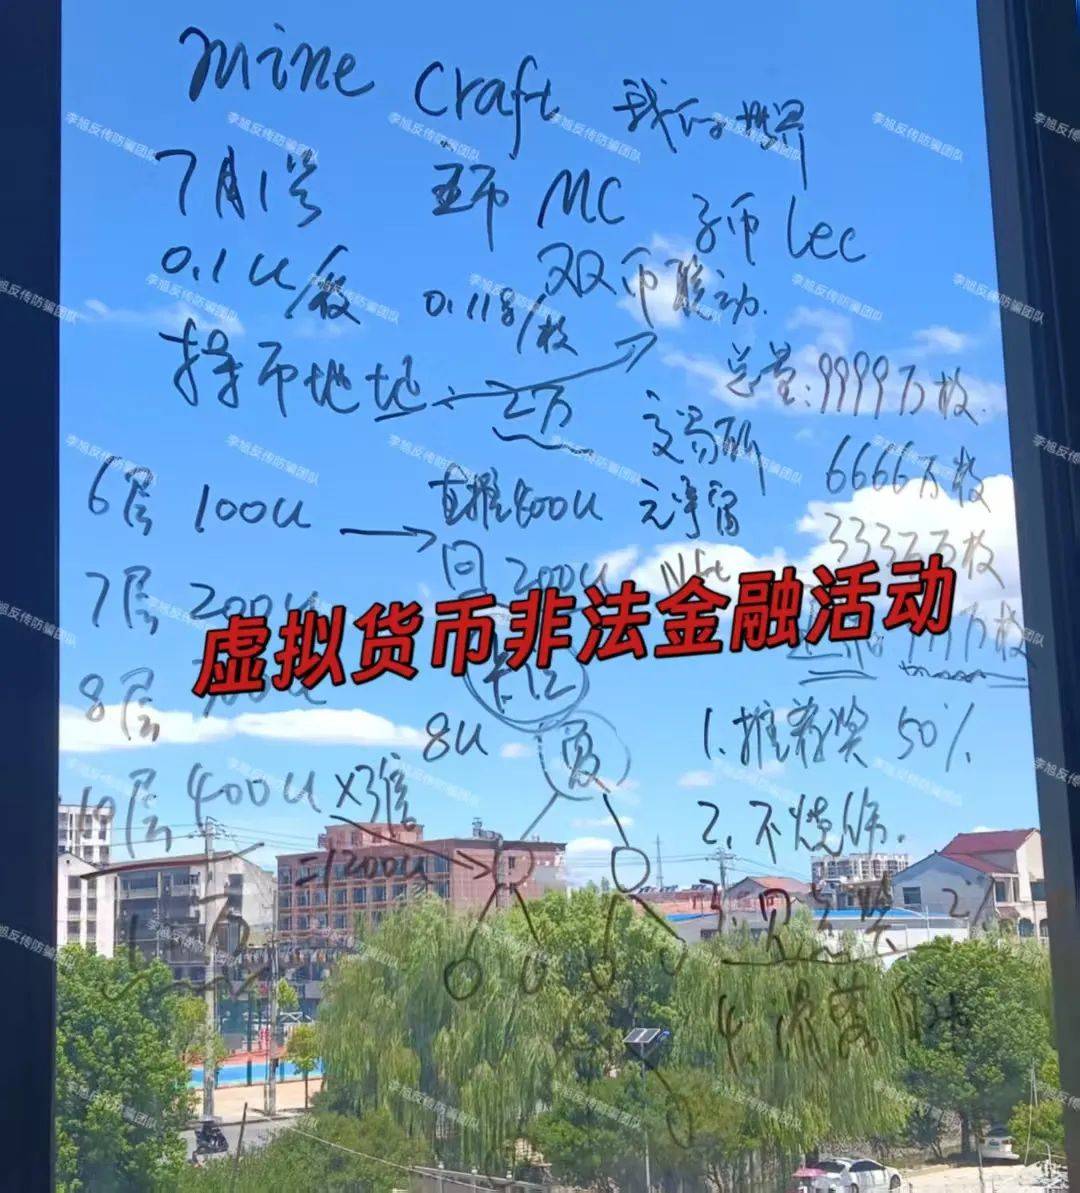 mine craft 我的世界
7月1号 主币 MC 子币 lec
0.1u/枚 0.118/枚 双币联动.
持币地址: 2万 总量:9999万枚.
交易所 6666万枚
6层 100u 直推400u 元宇宙
3332万枚
7层 200u 回 200u Nft
虚拟货币非法金融活动
万枚
8层
8u 1.推荐奖 50%
10层 400u×3倍 2.不烧伤.
=1200u
2%
4.
李旭反传防骗团队